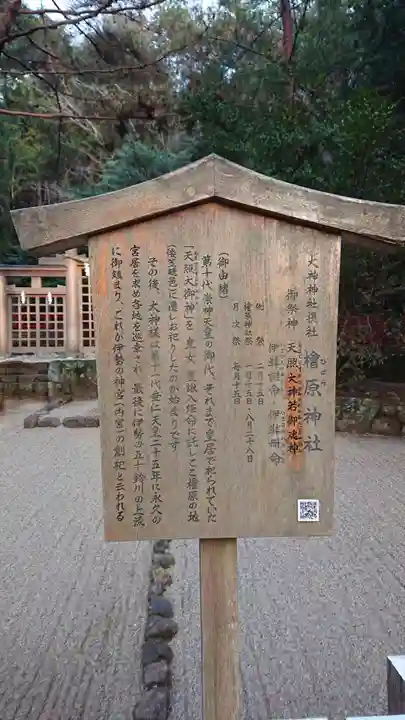 大神神社摂社 檜原神社
ひばら
御祭神 天照大神若御魂神
伊弉諾命・伊弉冊命
例祭 二月十五日
檜原神社祭 二月十五日・八月二十八日
月次祭 毎月十五日
(御由緒)
第十代崇神天皇の御代、それまで皇居で祀られていた
「天照大御神」を皇女 豊鍬入姫命に託しここ檜原の地
(倭笠縫邑)に遷しお祀りしたのが始まりです
その後、大神様は第十一代垂仁天皇二十五年に永久の
宮居を求め各地を巡幸され 最後に伊勢の五十鈴川の上流
に御鎮まり、これが伊勢の神宮(内宮)の創祀と云われる